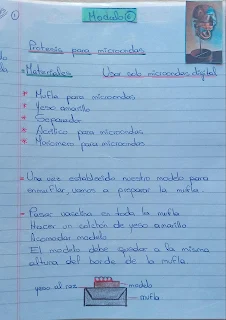 ①
Modulo ⑥
Protesis para microondas
- Materiales Usar solo microondas digital
* Mufla para microondas
* Yeso amarillo
* Separador
* Acrilico para microondas
* Monomero para microondas
- Una vez establecido nuestro modelo para
enmuflar, vamos a preparar la mufla.
- Pasar vaselina en toda la mufla
Hacer un colchón de yeso amarillo
Acomodar modelo
El modelo debe quedar a la misma
altura del borde de la mufla.
yeso al raz
modelo
mufla